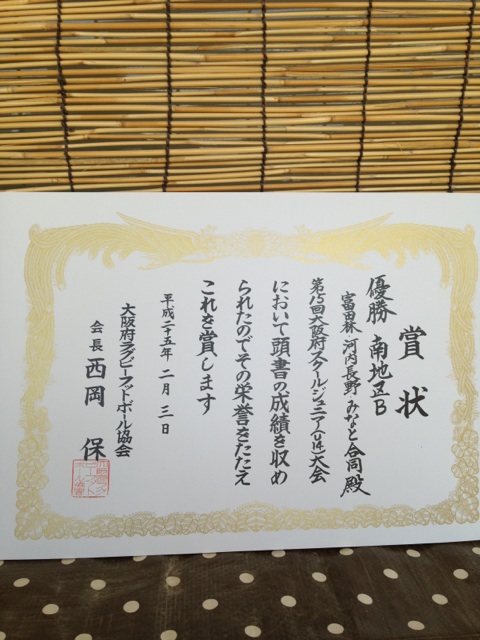 賞状
優勝 南地区B
富田林 河内長野 みなと合同殿
第15回大阪府スクールジュニア(U14)大会
において頭書の成績を収め
られたのでその栄誉をたたえ
これを賞します
平成二十五年 二月 三日
大阪府ラグビーフットボール協会
会長 西岡 保